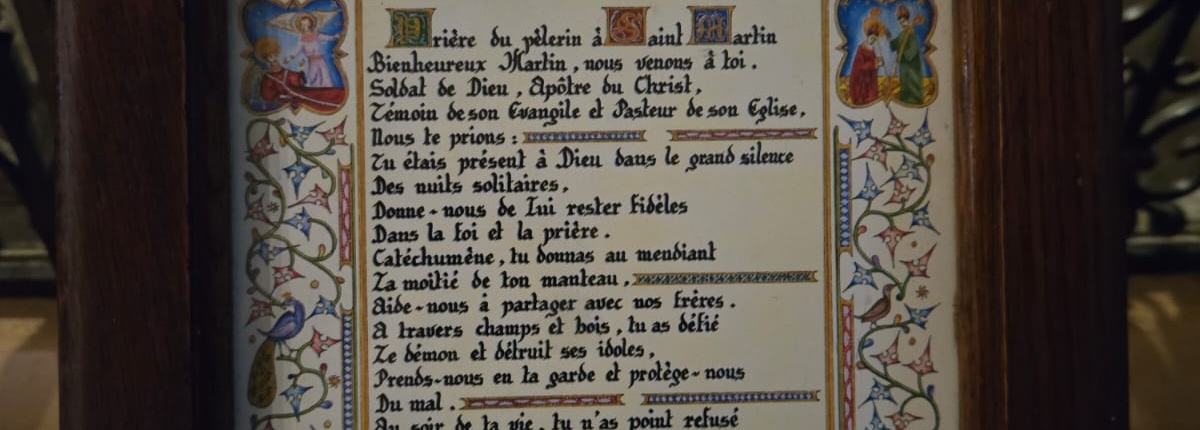 Prière du pèlerin à Saint Martin
Bienheureux Martin, nous venons à toi.
Soldat de Dieu, Apôtre du Christ,
Témoin de son Evangile et Pasteur de son Eglise,
Nous te prions :
Tu étais présent à Dieu dans le grand silence
Des nuits solitaires,
Donne-nous de Lui rester fidèles
Dans la foi et la prière.
Catéchumène, tu donnas au mendiant
La moitié de ton manteau,
Aide-nous à partager avec nos frères.
A travers champs et bois, tu as défié
Le démon et détruit ses idoles,
Prends-nous en ta garde et protège-nous
Du mal.
Au soir de ta vie, tu n'as point refusé